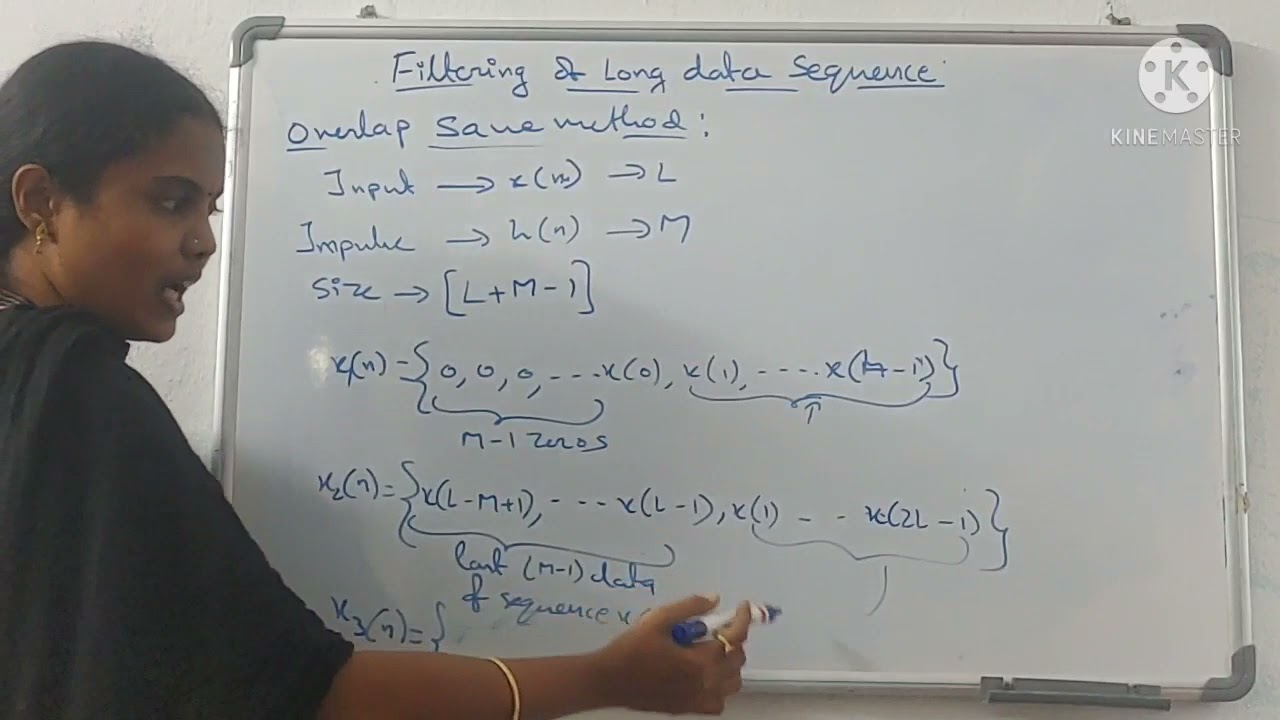 Filtering of Long data Sequence
K
KINEMASTER
Overlap Save method :
Input → x(n) → L
Impulse → h(n) → M
Size → [L+M-1]
x(n) = {0, 0, 0, ---- x(0), x(1), ---- x(L-1)}
M-1 zeros
x₂(n) = {x(L-M+1), - --- x(L-1), x(1) - - x(2L-1)}
last (M-1) data
of sequence x
x₃(n) = {